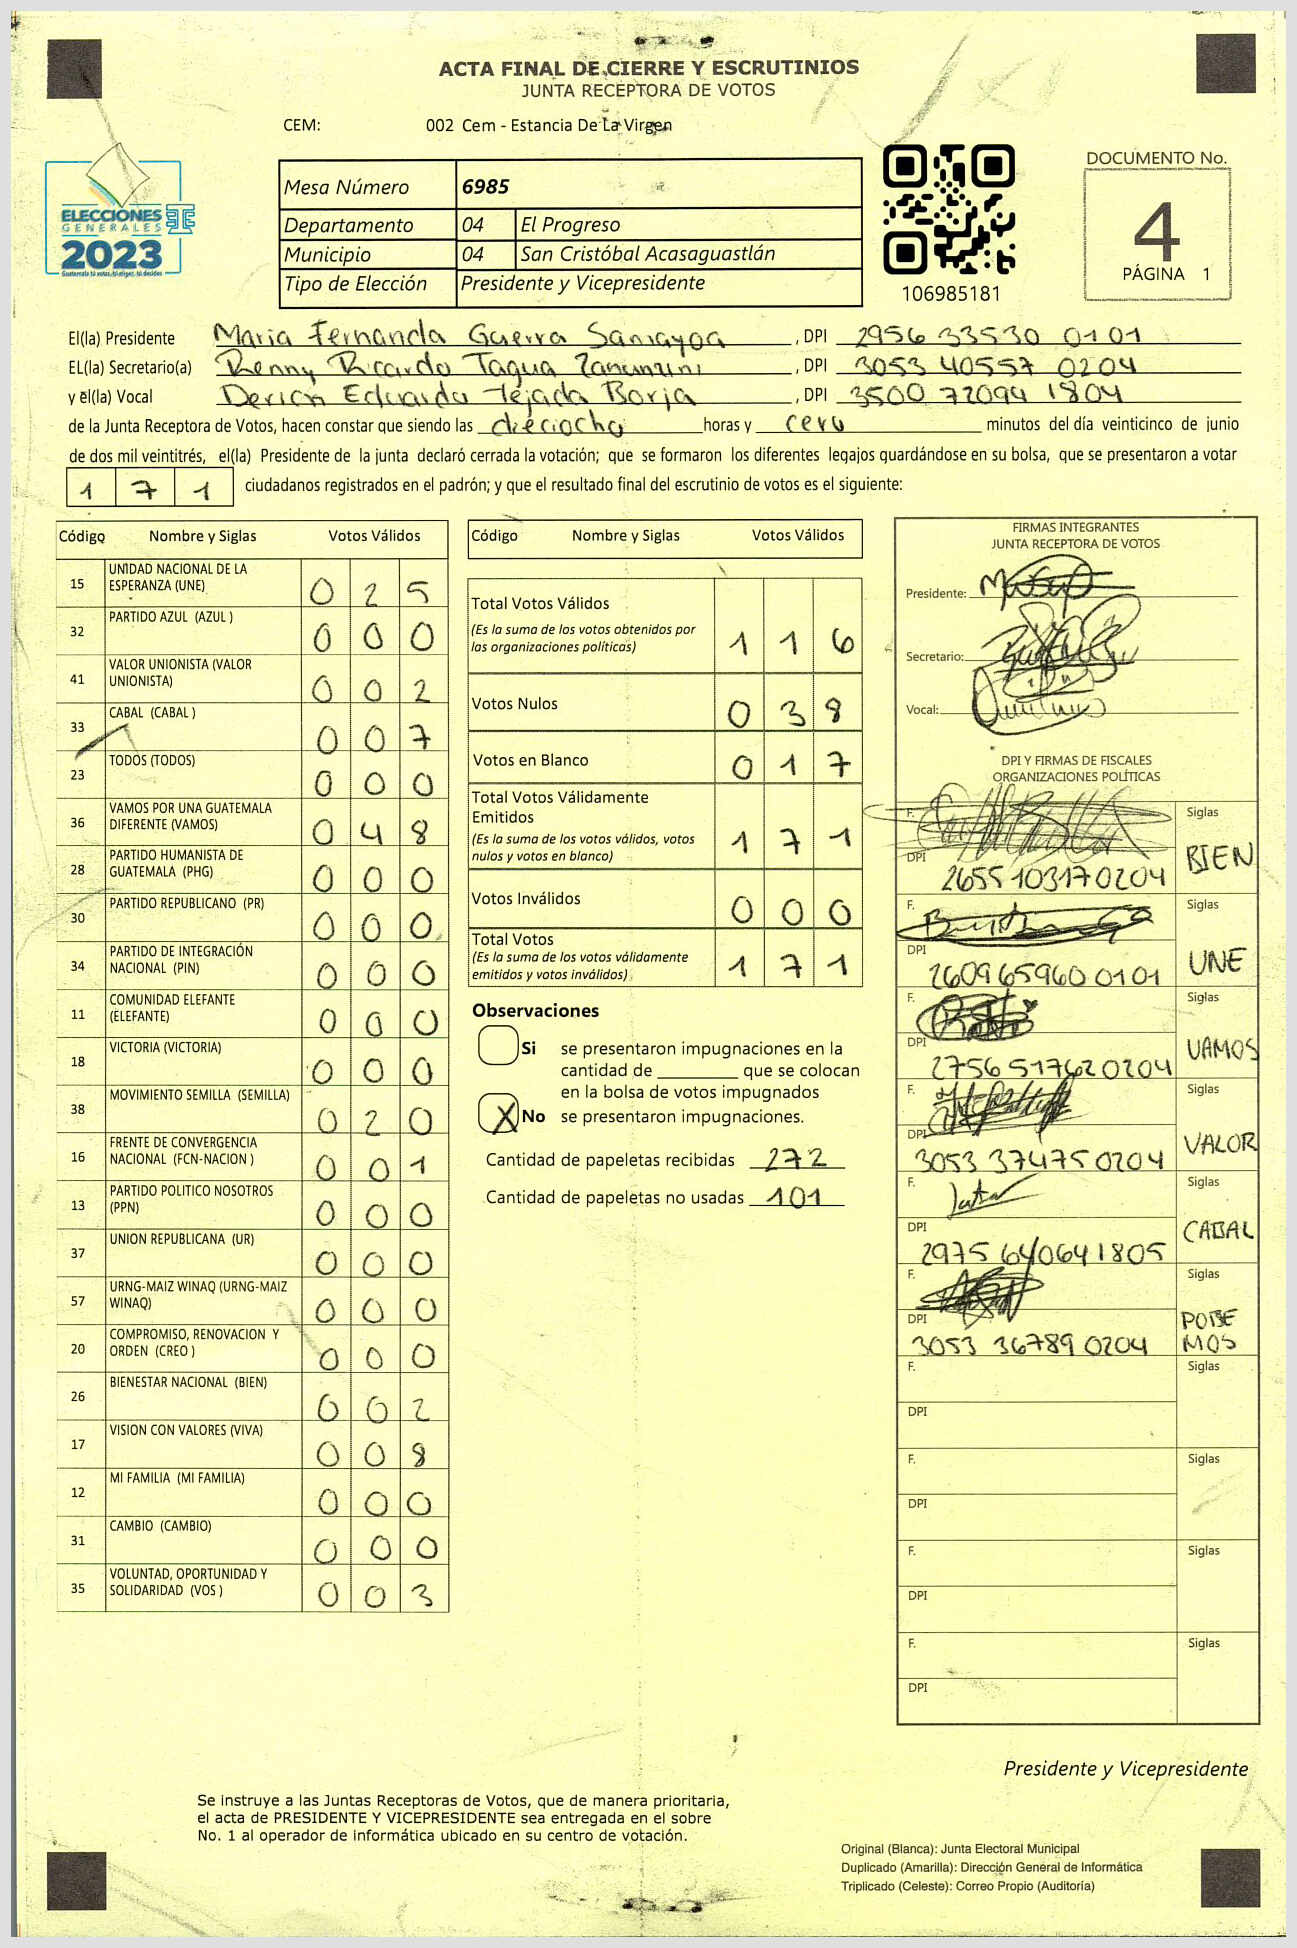 ACTA FINAL DE CIERRE Y ESCRUTINIOS
JUNTA RECEPTORA DE VOTOS
CEM: 002 Cem - Estancia De La Virgen
ELECCIONES
GENERALES
2023
Mesa Número 6985
Departamento 04 El Progreso
Municipio 04 San Cristóbal Acasaguastlán
Tipo de Elección Presidente y Vicepresidente
106985181
DOCUMENTO No.
4
PÁGINA 1
El(la) Presidente Maria Fernanda Guerra Samayoa, DPI 2956 33530 0101
EL(la) Secretario(a) Renny Ricardo Tagua, DPI 3053 40557 0204
y el(la) Vocal Derian Eduardo Tejada Borja, DPI 3500 72094 1804
de la Junta Receptora de Votos, hacen constar que siendo las dieciocho horas y cero minutos del día veinticinco de junio
de dos mil veintitrés, el(la) Presidente de la junta declaró cerrada la votación; que se formaron los diferentes legajos guardándose en su bolsa, que se presentaron a votar
1 7 1 ciudadanos registrados en el padrón; y que el resultado final del escrutinio de votos es el siguiente:
Código Nombre y Siglas Votos Válidos
15 UNIDAD NACIONAL DE LA ESPERANZA (UNE) 0 2 5
32 PARTIDO AZUL (AZUL ) 0 0 0
41 VALOR UNIONISTA (VALOR UNIONISTA) 0 0 2
33 CABAL (CABAL ) 0 0 7
23 TODOS (TODOS) 0 0 0
36 VAMOS POR UNA GUATEMALA DIFERENTE (VAMOS) 0 4 8
28 PARTIDO HUMANISTA DE GUATEMALA (PHG) 0 0 0
30 PARTIDO REPUBLICANO (PR) 0 0 0
34 PARTIDO DE INTEGRACIÓN NACIONAL (PIN) 0 0 0
11 COMUNIDAD ELEFANTE (ELEFANTE) 0 0 0
18 VICTORIA (VICTORIA) 0 0 0
38 MOVIMIENTO SEMILLA (SEMILLA) 0 2 0
16 FRENTE DE CONVERGENCIA NACIONAL (FCN-NACION ) 0 0 1
13 PARTIDO POLITICO NOSOTROS (PPN) 0 0 0
37 UNION REPUBLICANA (UR) 0 0 0
57 URNG-MAIZ WINAQ (URNG-MAIZ WINAQ) 0 0 0
20 COMPROMISO, RENOVACION Y ORDEN (CREO ) 0 0 0
26 BIENESTAR NACIONAL (BIEN) 0 0 2
17 VISION CON VALORES (VIVA) 0 0 8
12 MI FAMILIA (MI FAMILIA) 0 0 0
31 CAMBIO (CAMBIO) 0 0 0
35 VOLUNTAD, OPORTUNIDAD Y SOLIDARIDAD (VOS ) 0 0 3
Código Nombre y Siglas Votos Válidos
Total Votos Válidos
(Es la suma de los votos obtenidos por las organizaciones políticas) 1 1 6
Votos Nulos 0 3 8
Votos en Blanco 0 1 7
Total Votos Válidamente Emitidos
(Es la suma de los votos válidos, votos nulos y votos en blanco) 1 7 1
Votos Inválidos 0 0 0
Total Votos
(Es la suma de los votos válidamente emitidos y votos inválidos) 1 7 1
Observaciones
Si se presentaron impugnaciones en la
cantidad de ________ que se colocan
en la bolsa de votos impugnados
X No se presentaron impugnaciones.
Cantidad de papeletas recibidas 272
Cantidad de papeletas no usadas 101
FIRMAS INTEGRANTES
JUNTA RECEPTORA DE VOTOS
Presidente:
Secretario:
Vocal:
DPI Y FIRMAS DE FISCALES
ORGANIZACIONES POLÍTICAS
F. Siglas
DPI 2655 10317 0204 BIEN
F. Siglas
DPI 2609 65960 0101 UNE
F. Siglas
DPI 2756 51762 0204 VAMOS
F. Siglas
DPI 3053 37475 0204 VALOR
F. Siglas
DPI 2975 64064 1805 CABAL
F. Siglas
DPI 3053 36789 0204 PODE
MOS
F. Siglas
DPI
F. Siglas
DPI
F. Siglas
DPI
F. Siglas
DPI
Presidente y Vicepresidente
Se instruye a las Juntas Receptoras de Votos, que de manera prioritaria,
el acta de PRESIDENTE Y VICEPRESIDENTE sea entregada en el sobre
No. 1 al operador de informática ubicado en su centro de votación.
Original (Blanca): Junta Electoral Municipal
Duplicado (Amarilla): Dirección General de Informática
Triplicado (Celeste): Correo Propio (Auditoría)